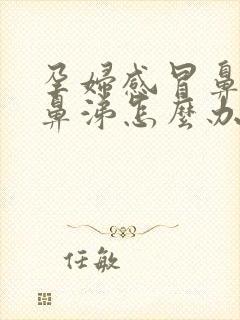 孕婦感冒鼻
鼻涕怎麼办
任敏